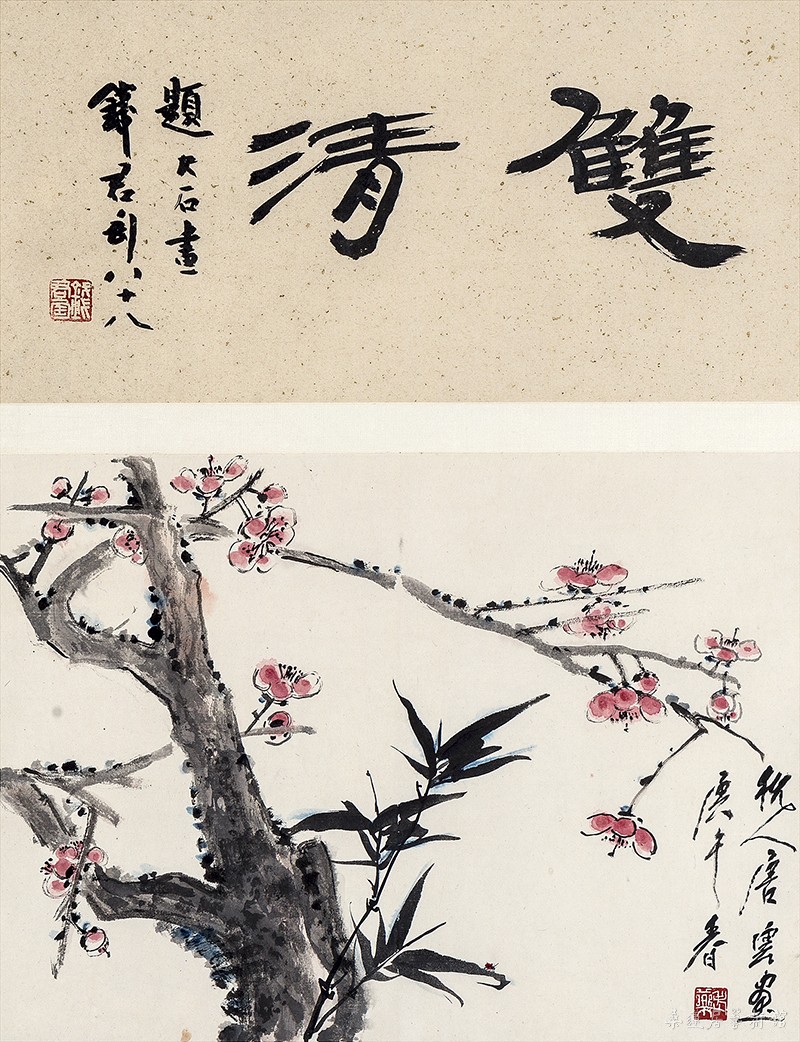 雙清
題大石畫
錢君匋八十八
錢君匋
杭人唐雲畫
庚午春